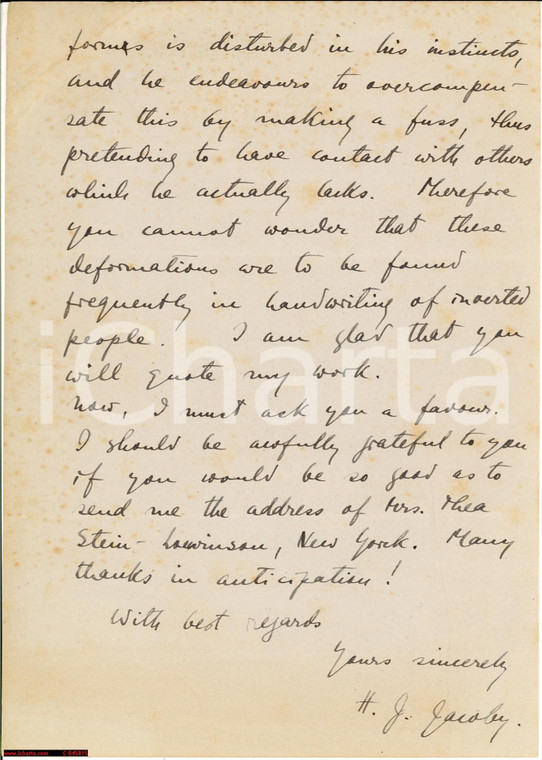 forms is disturbed in his instincts,
and he endeavours to overcompen-
sate this by making a fuss, thus
pretending to have contact with others
which he actually lacks. Therefore
you cannot wonder that these
deformations are to be found
frequently in handwriting of inverted
people. I am glad that you
will quote my work.
Now, I must ask you a favour.
I should be awfully grateful to you
if you would be so good as to
send me the address of Mrs. Thea
Stein-Lewinson, New York. Many
thanks in anticipation!
With best regards
Yours sincerely
H. J. Jacoby.
iCharta
www.icharta.com